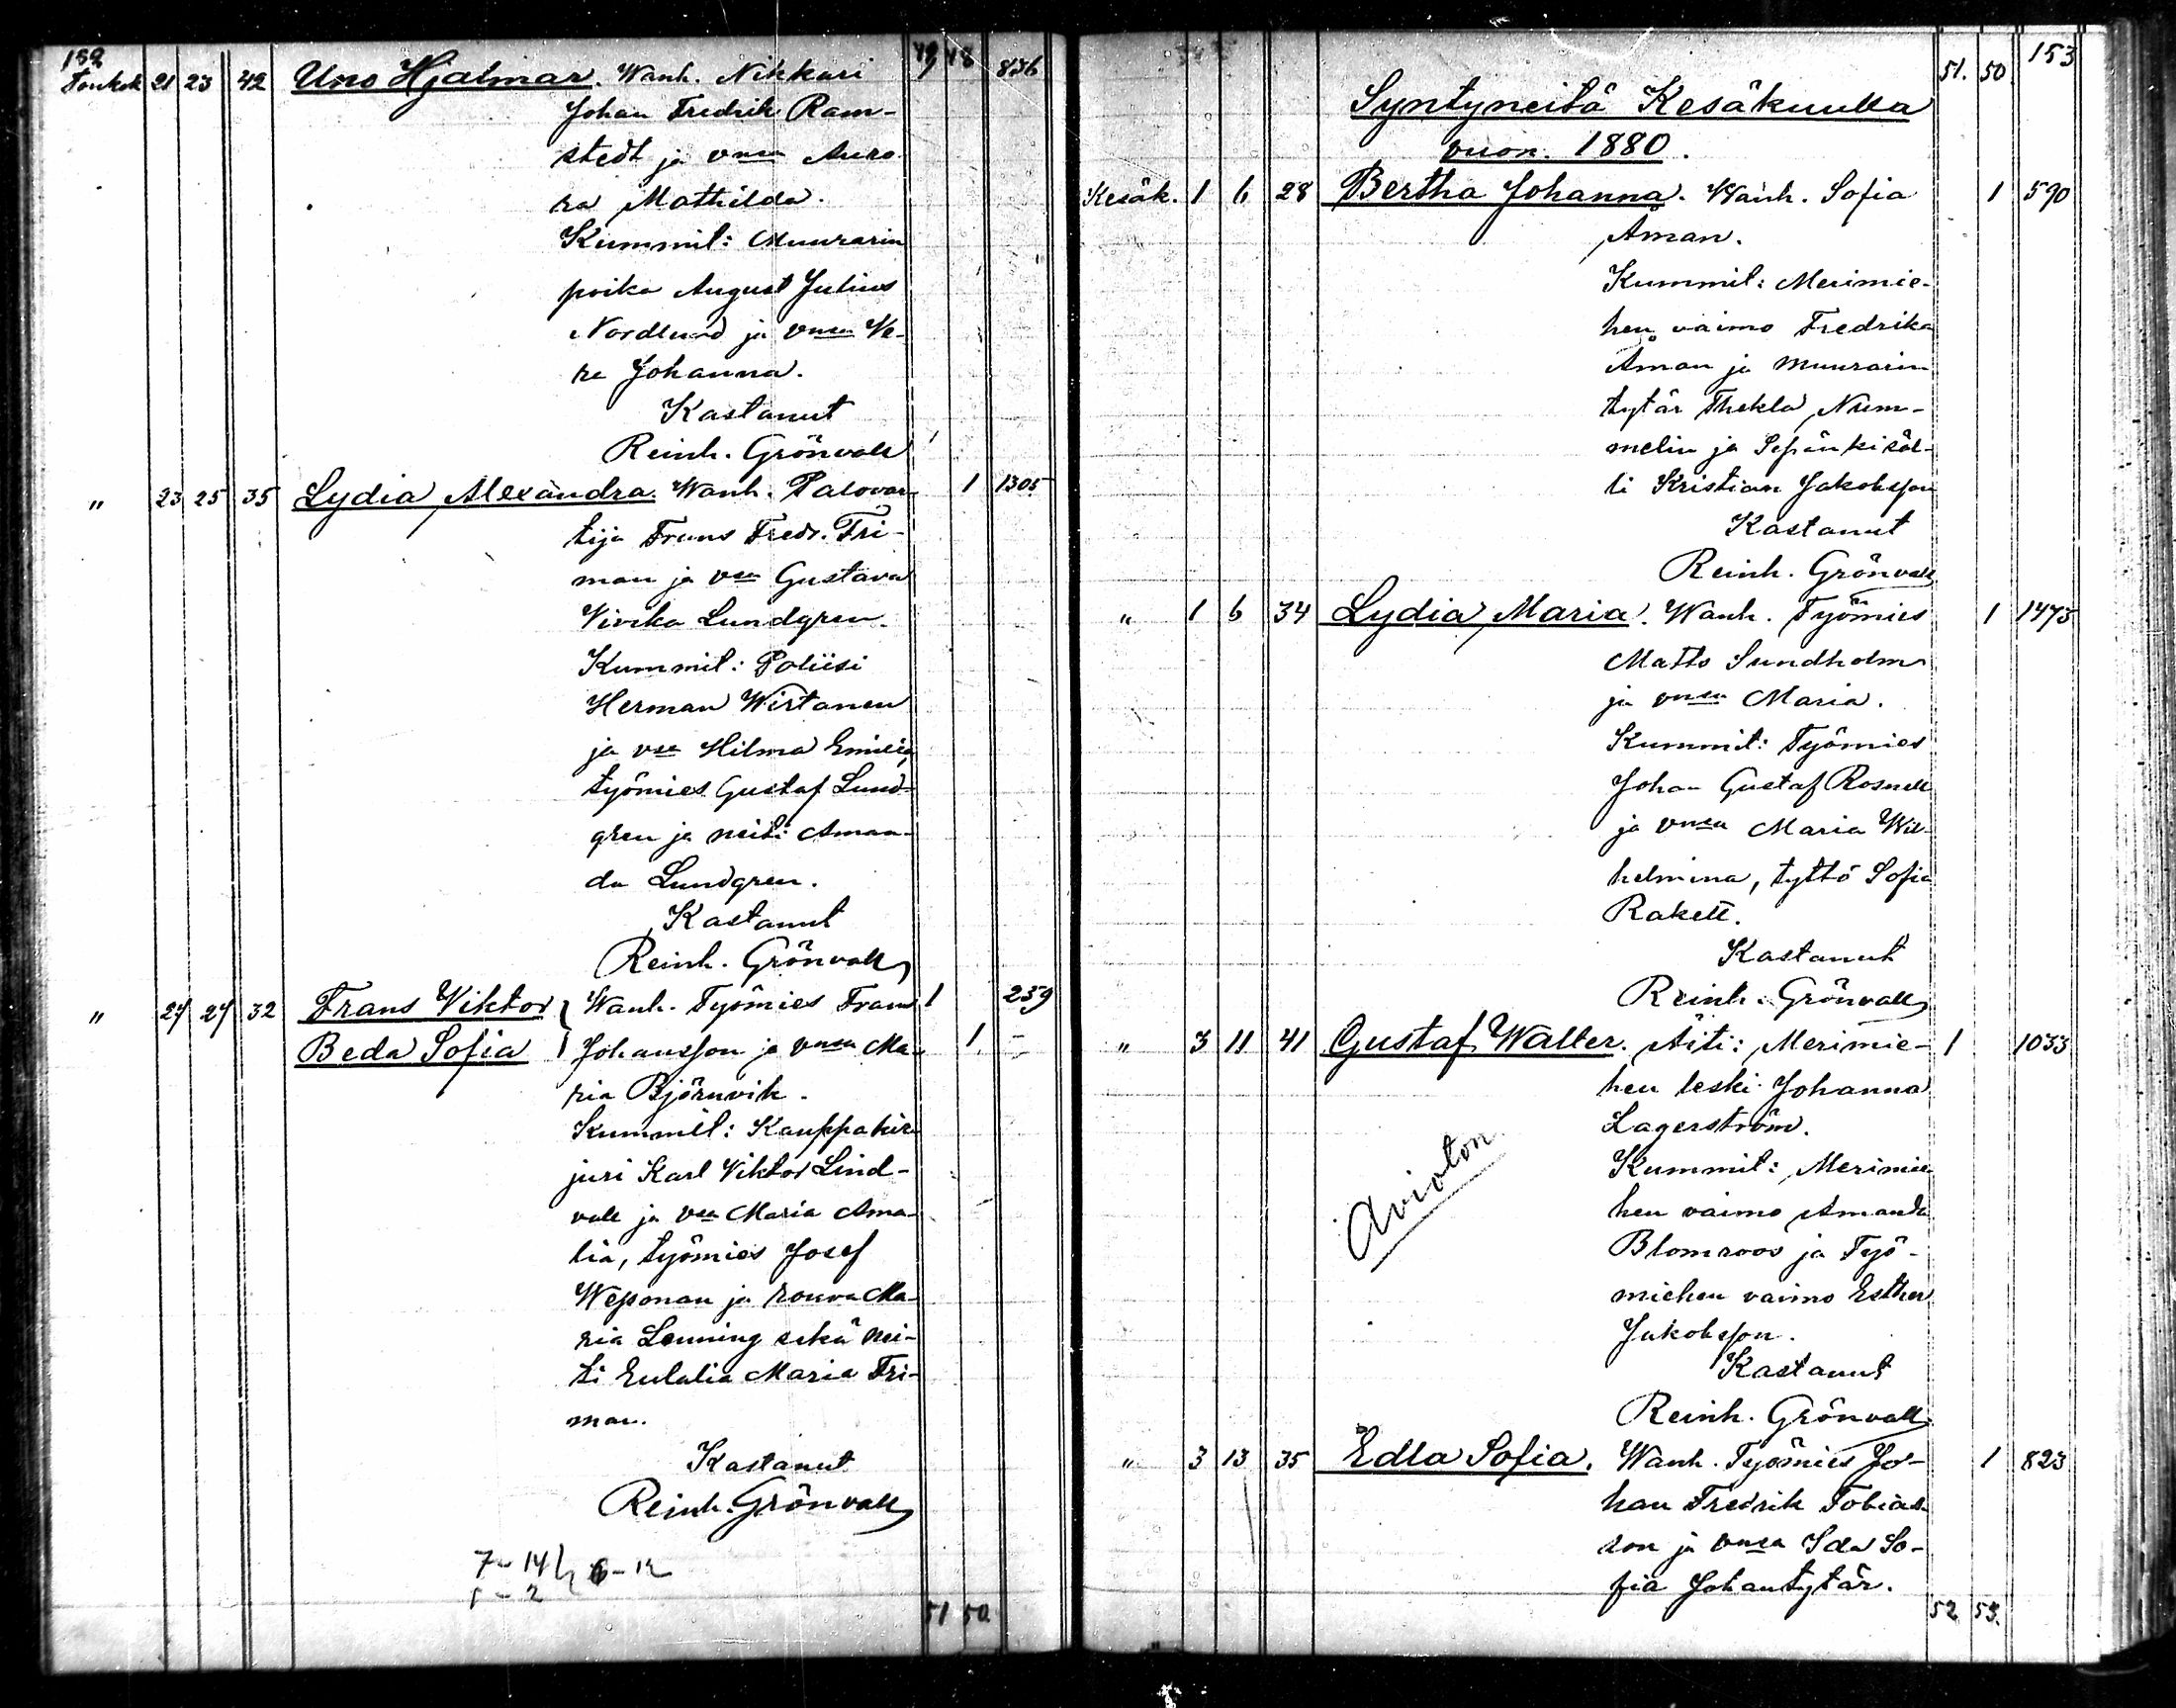 152
Toukok 21 23 42 Uno Hjalmar. Wanh. Nikkari 49 48 836
Johan Fredrik Ram-
stedt ja vmsa Auro
ra Mathilda.
Kummit: Muurarin
poika August Julius
Nordlund ja vmsa Ve-
ra Johanna.
Kastanut
Reinh. Grönvall
" 23 25 35 Lydia Alexandra. Wanh. Palovar 1 1305
tija Frans Fredr. Fri-
man ja vsa Gustava
Vivika Lundgren.
Kummit: Poliisi
Herman Wirtanen
ja vsa Hilma Emilia,
työmies Gustaf Lund-
gren ja neiti Aman-
da Lundgren.
Kastanut
Reinh. Grönvall
" 27 27 32 Frans Viktor } Wanh. Työmies Frans 1 259
Beda Sofia } Johansson ja vmsa Ma- 1 -
ria Björnvik.
Kummit: Kauppakir
juri Karl Viktor Lind-
vall ja vsa Maria Ama-
lia, työmies Josef
Weponan ja rouva Ma-
ria Lenning sekä nei-
ti Eulalia Maria Fri-
man.
Kastanut
Reinh. Grönvall
7-14 6-12
2
51 50.
51. 50 153
Syntyneitä Kesäkuulla
vuon. 1880.
Kesäk. 1 6 28 Bertha Johanna. Wanh. Sofia 1 590
Åman.
Kummit: Merimie-
hen vaimo Fredrika
Åman ja muurarin
tytär Thekla Num-
melin ja Sepänkisäl-
li Kristian Jakobsson
Kastanut
Reinh. Grönvall
" 1 6 34 Lydia Maria. Wanh. Työmies 1 1475
Matts Sundholm
ja vmsa Maria.
Kummit: Työmies
Johan Gustaf Rosnell
ja vmsa Maria Wil-
helmina, tyttö Sofia
Rakett.
Kastanut
Reinh. Grönvall
" 3 11 41 Gustaf Walter. Äiti: Merimie- 1 1033
hen leski Johanna
Lagerström.
Avioton
Kummit: Merimie
hen vaimo Amanda
Blomroos ja Työ-
miehen vaimo Esther
Jakobsson.
Kastanut
Reinh. Grönvall
" 3 13 35 Edla Sofia. Wanh. Työmies Jo- 1 823
han Fredrik Tobias-
son ja vmsa Ida So-
fia Johantytär.
52 53.